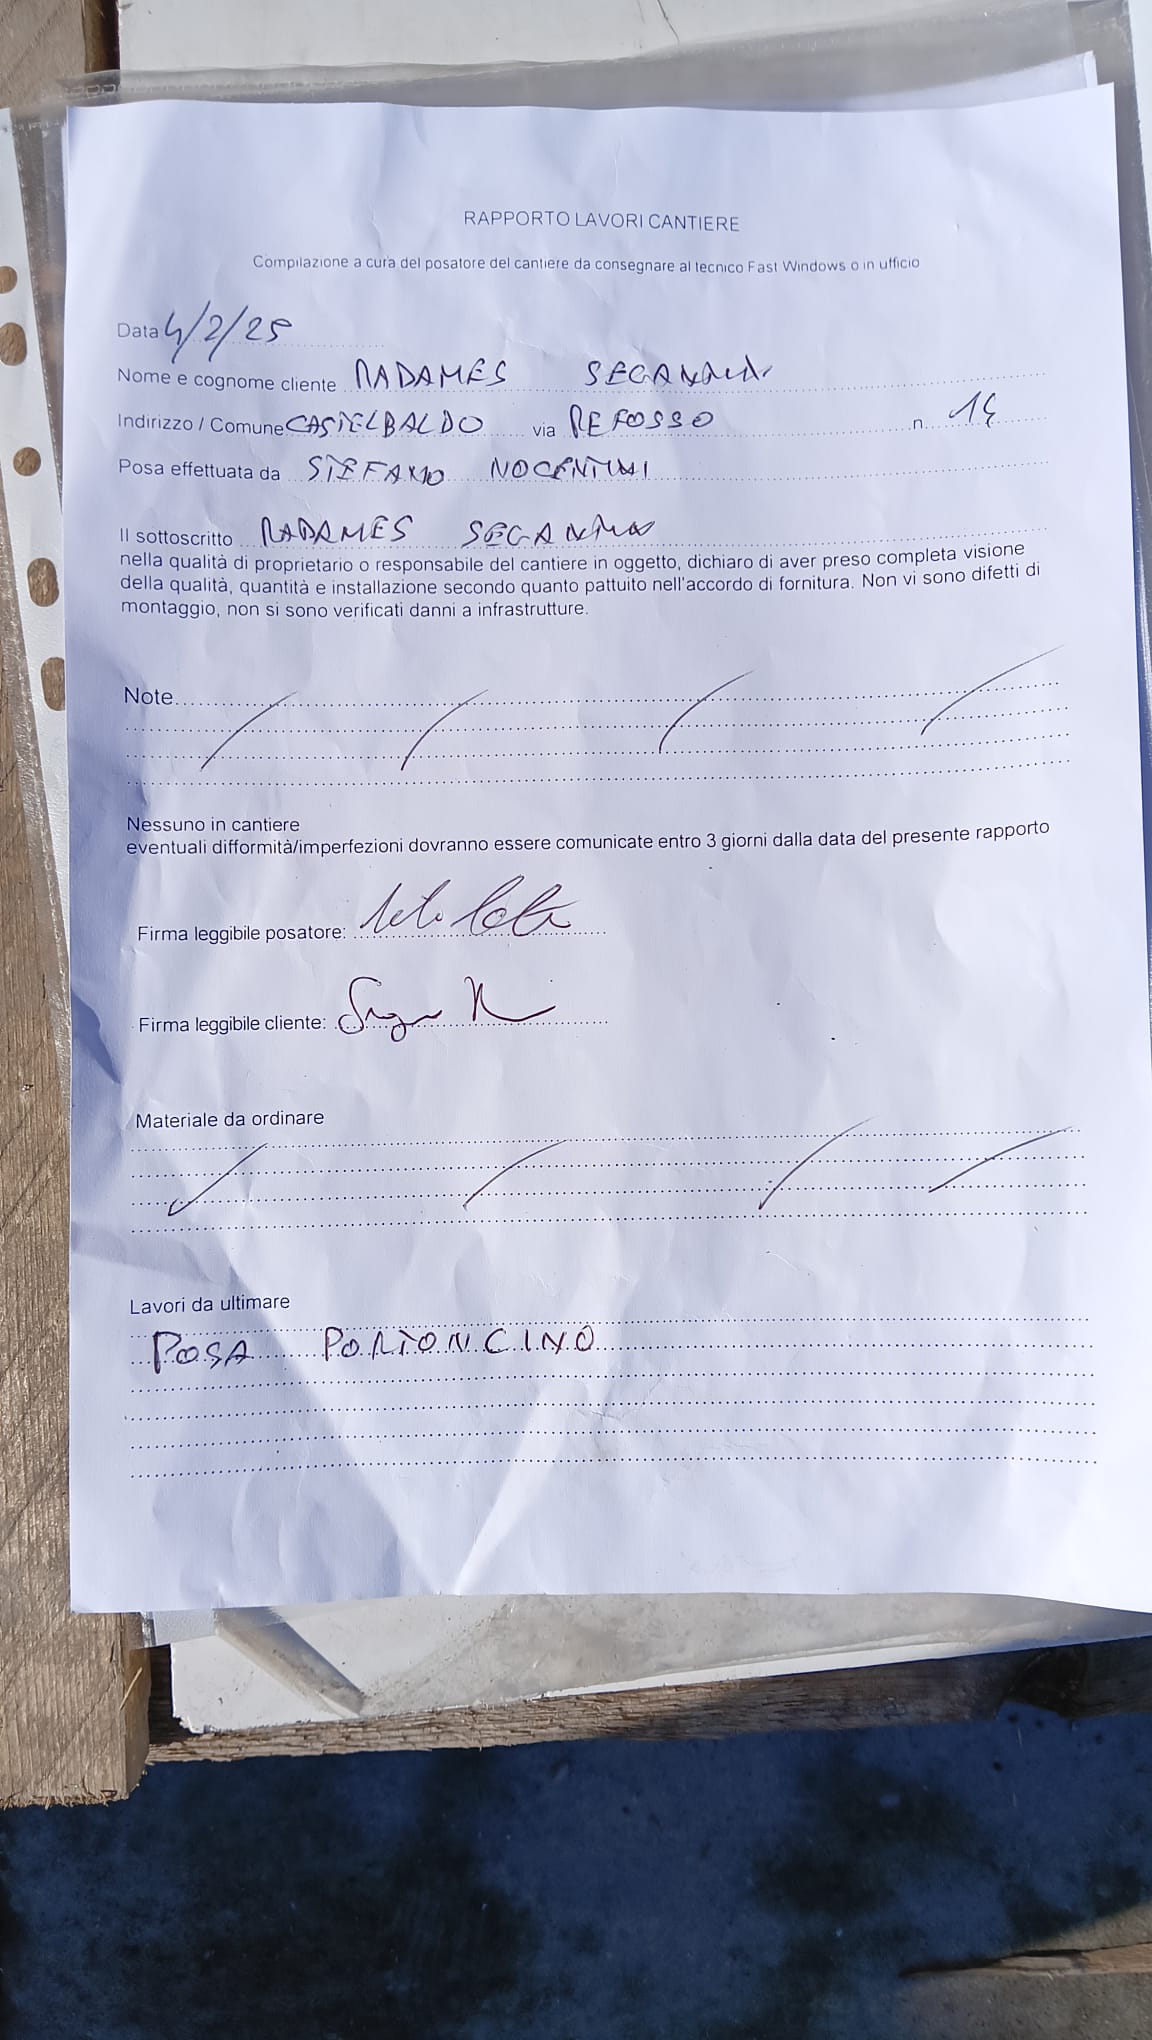 RAPPORTO LAVORI CANTIERE
Compilazione a cura del posatore del cantiere da consegnare al tecnico Fast Windows o in ufficio
Data 4/2/25
Nome e cognome cliente RADAMES
Indirizzo / Comune CASTELBALDO via REFOSSO n. 14
Posa effettuata da STEFANO NOCENTINI
Il sottoscritto RADAMES
nella qualità di proprietario o responsabile del cantiere in oggetto, dichiaro di aver preso completa visione
della qualità, quantità e installazione secondo quanto pattuito nell'accordo di fornitura. Non vi sono difetti di
montaggio, non si sono verificati danni a infrastrutture.
Note
Nessuno in cantiere
eventuali difformità/imperfezioni dovranno essere comunicate entro 3 giorni dalla data del presente rapporto
Firma leggibile posatore:
Firma leggibile cliente:
Materiale da ordinare
Lavori da ultimare
POSA PORTONCINO